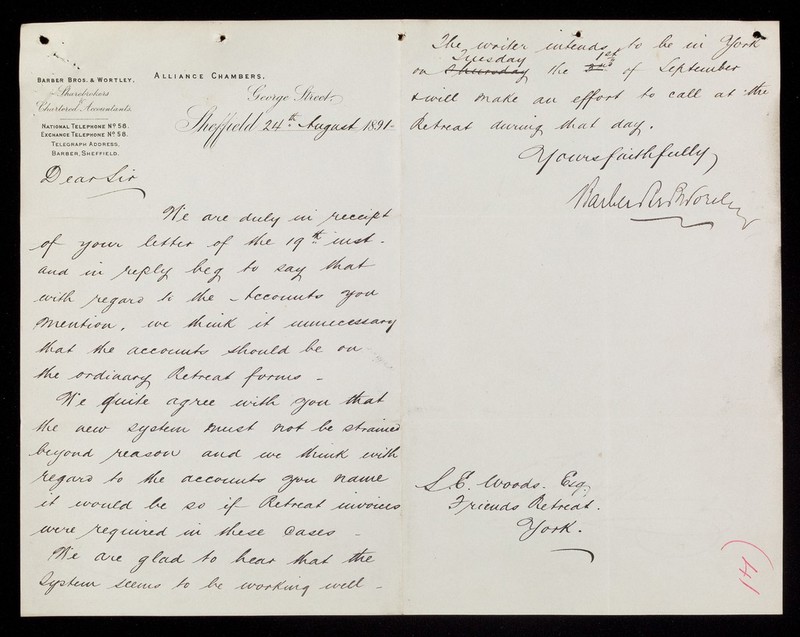 BARBER BROS. & WORTLEY.
Sharebrokers
Chartered Accountants.
NATIONAL TELEPHONE Nº 58.
EXCHANGE TELEPHONE Nº 58.
TELEGRAPH ADDRESS,
BARBER, SHEFFIELD.
ALLIANCE CHAMBERS.
George Street,
Sheffield 24th August 1891
Dear Sir
We are duly in receipt
of your letter of the 19th inst.
and in reply beg to say that
with regard to the accounts you
mention, we think it unnecessary
that the accounts should be on
the ordinary Retreat forms -
We quite agree with you that
the new system must not be strained
beyond reason and we think with
regard to the accounts you name
it would be so if Retreat invoices
were required in these cases -
We are glad to hear that the
system seems to be working well -
The writer intends to be in York
Tuesday 1st
on Thursday the 3rd of September
& will make an effort to call at the
Retreat during that day.
Yours faithfully
Barber Bros & Wortley
S. E. Woods. Esq,
Friends Retreat.
York.
14)